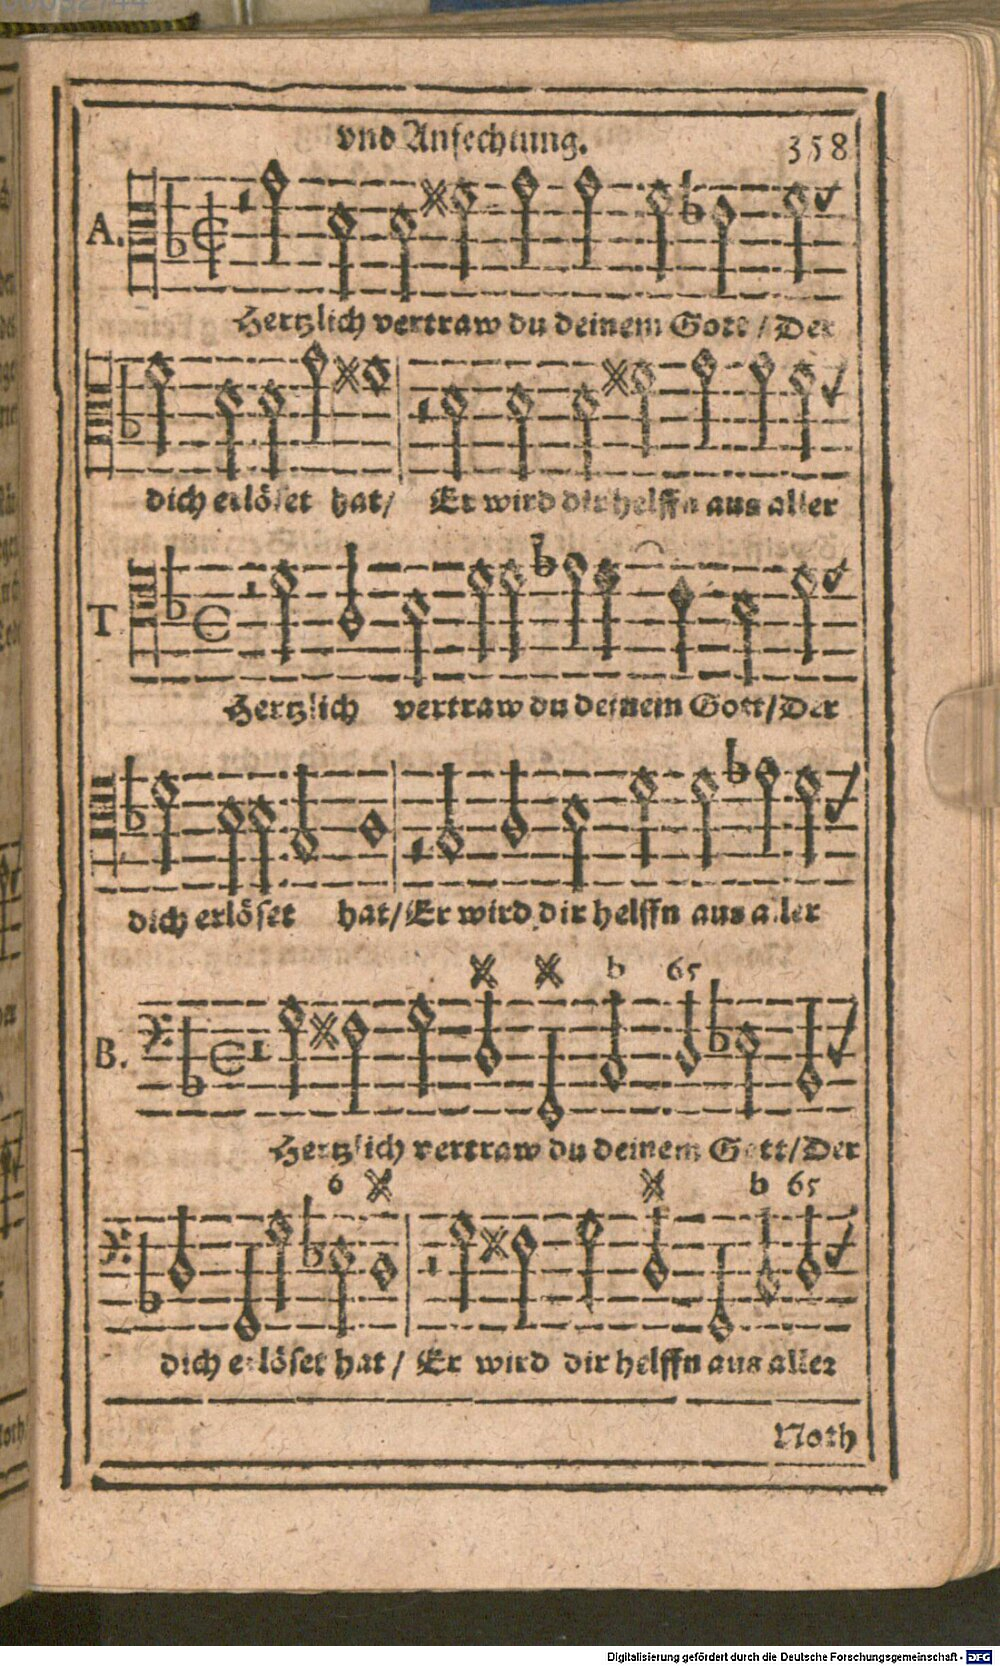 vnd Anfechtung.
358
A.
Hertzlich vertraw du deinem Gott / Der
dich erlöset hat/ Er wird dir helffn aus aller
T
Hertzlich vertraw du deinem Gott/Der
dich erlöset hat/Er wird dir helffn aus aller
b 65
B.
Hertzlich vertraw du deinem Gott/Der
6 b 65
dich erlöset hat / Er wird dir helffn aus aller
Noth
Digitalisierung gefördert durch die Deutsche Forschungsgemeinschaft - DFG